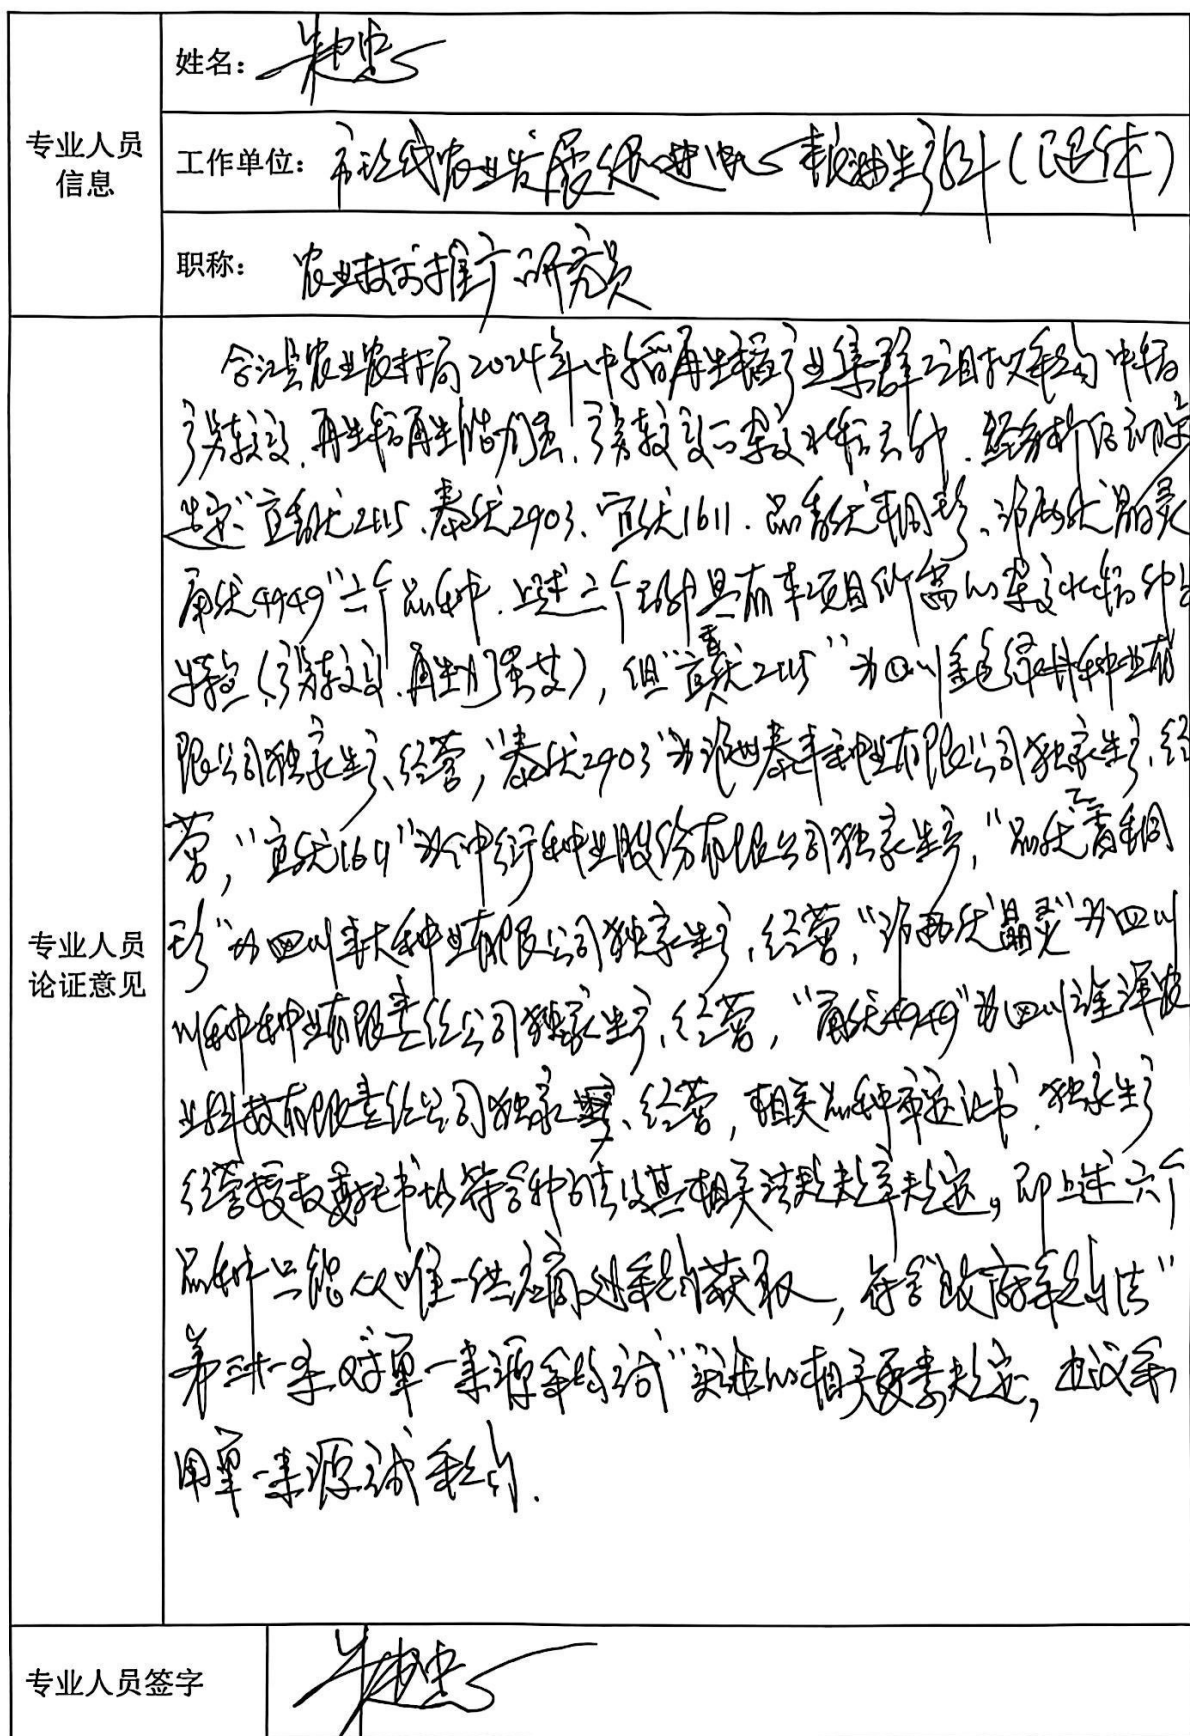 专业人员
信息
姓名:
工作单位: 农业发展促进中心 (已退休)
职称: 农业技术推广研究员
专业人员
论证意见
合江县农业农村局2024年中稻再生稻产业集群项目拟采购中稻
产量较高、再生稻再生能力强、产量较高的杂交水稻良种.经分析后初步
选定"宜香优2115、泰优2903、宜优1611.品香优桐珍、泸两优晶灵
甬优4949"六个品种.上述六个品种具有本项目所需的杂交水稻种子
特点(产量较高、再生力强等),但"宜香优2115"为四川绿丹种业有
限公司独家生产、经营,"泰优2903"为泸州泰丰种业有限公司独家生产、经
营,"宜优1611"为仲衍种业股份有限公司独家生产,"品香优桐
珍"为四川种业有限公司独家生产、经营,"泸两优晶灵"为四川
川种种业有限责任公司独家生产、经营,"甬优4949"为四川农
业科技有限责任公司独家生产、经营,相关品种审定证书、独家生产
经营授权委托书均符合种子法及其相关法规规章规定。即上述六个
品种只能从唯一供应商处采购获取,符合"政府采购法"
第三十一条对"单一来源采购方式"实施的相关要素规定,建议采
用单一来源方式采购.
专业人员签字